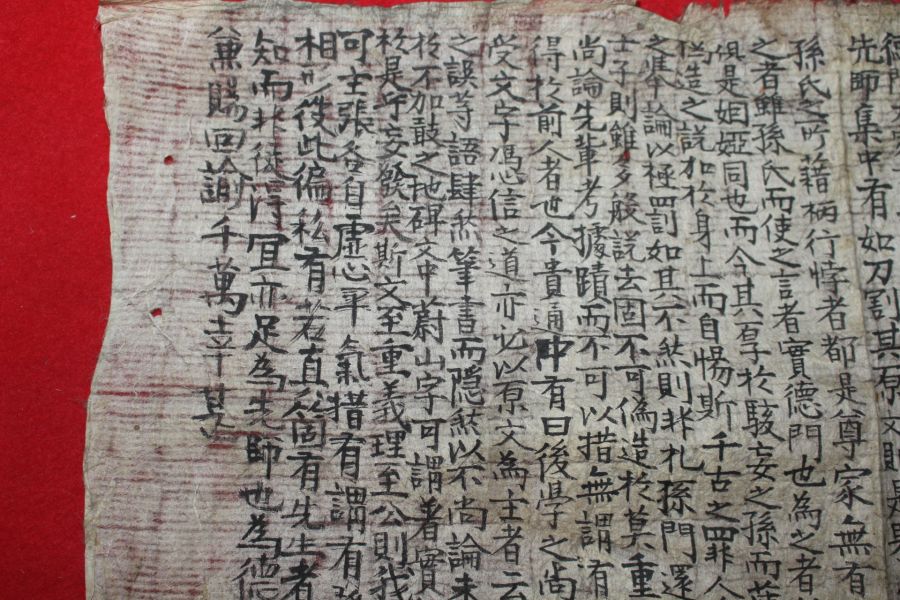 先師集中有如刀割其原文則是
孫氏之所藉柄行悖者都是尊家無有
之者雖孫氏而使之言者實德門也為之者
俱是姻婭同也而今其辱於駭妄之孫而
偽造之說加於身上而自惕斯千古之罪人
之準論以極罰如其不然則非札孫門還
士子則雖多般說去固不可偽造於莫重
尚論先輩考據蹟而不可以措無謂有
得於前人者也今貴通中有曰後學之尚
受文字憑信之道亦必以原文為主者云
之誤等語肆然筆書而隱然以不尚論未
於不加敲之地碑文中蔚山字可謂著實
於是乎妄發矣斯文至重義理至公則我
可主張各自虛心平氣措有謂有
相形後此偏私有若直以箇有先生者
知而非從淂冝亦足為先師也為德
兼賜回諭千萬幸甚